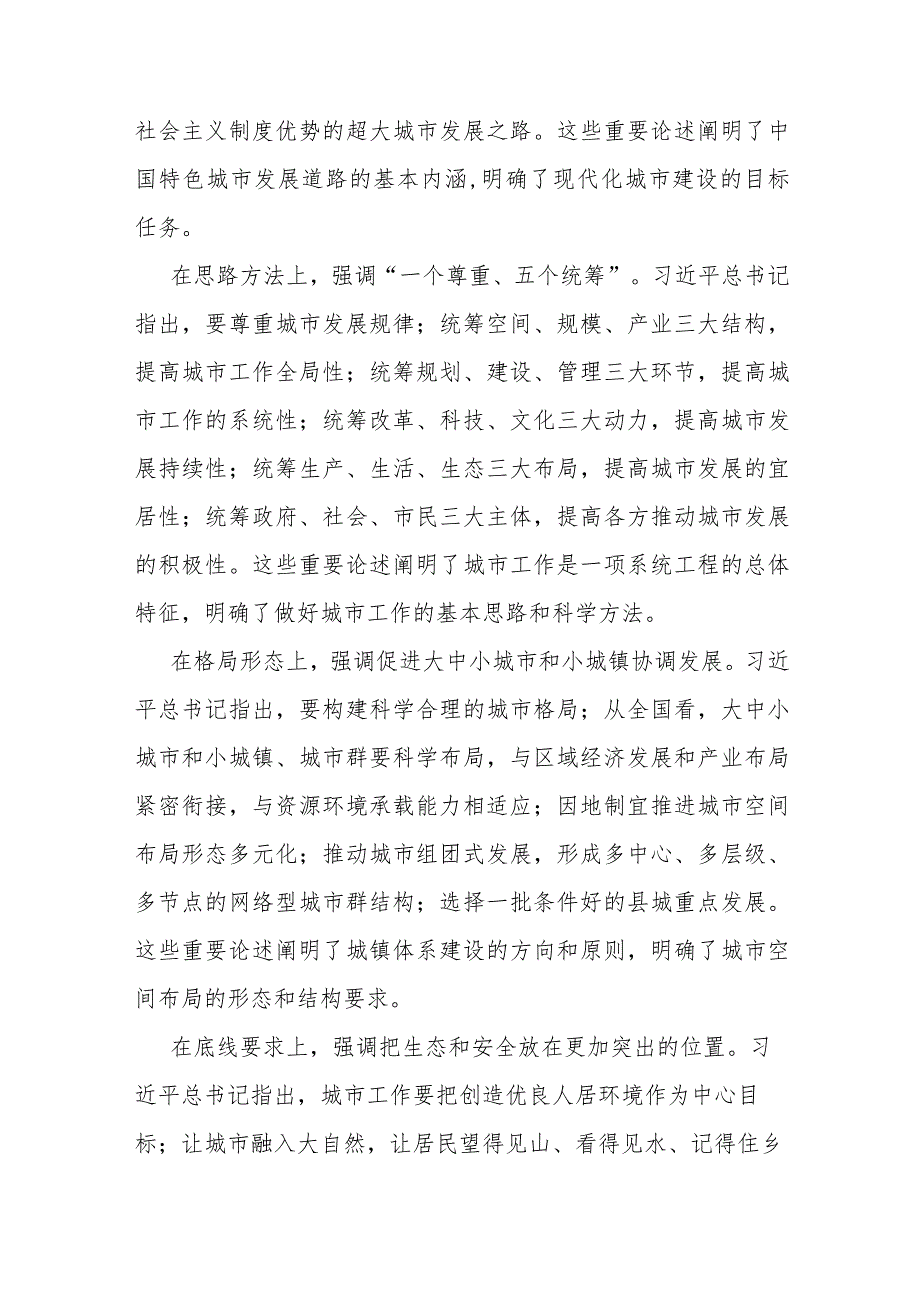 社会主义制度优势的超大城市发展之路。这些重要论述阐明了中
国特色城市发展道路的基本内涵,明确了现代化城市建设的目标
任务。
在思路方法上，强调“一个尊重、五个统筹”。习近平总书记
指出，要尊重城市发展规律；统筹空间、规模、产业三大结构，
提高城市工作全局性；统筹规划、建设、管理三大环节，提高城
市工作的系统性；统筹改革、科技、文化三大动力，提高城市发
展持续性；统筹生产、生活、生态三大布局，提高城市发展的宜
居性；统筹政府、社会、市民三大主体，提高各方推动城市发展
的积极性。这些重要论述阐明了城市工作是一项系统工程的总体
特征，明确了做好城市工作的基本思路和科学方法。
在格局形态上，强调促进大中小城市和小城镇协调发展。习近
平总书记指出，要构建科学合理的城市格局；从全国看，大中小
城市和小城镇、城市群要科学布局，与区域经济发展和产业布局
紧密衔接，与资源环境承载能力相适应；因地制宜推进城市空间
布局形态多元化；推动城市组团式发展，形成多中心、多层级、
多节点的网络型城市群结构；选择一批条件好的县城重点发展。
这些重要论述阐明了城镇体系建设的方向和原则，明确了城市空
间布局的形态和结构要求。
在底线要求上，强调把生态和安全放在更加突出的位置。习
近平总书记指出，城市工作要把创造优良人居环境作为中心目
标；让城市融入大自然，让居民望得见山、看得见水、记得住乡